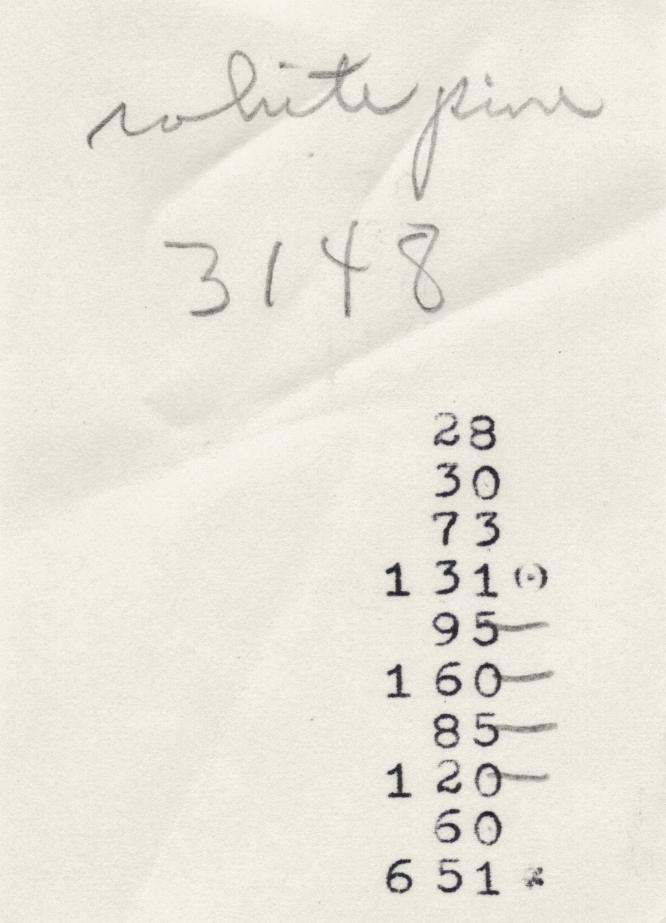 white pine
3148
28
30
73
1 31 ⊙
95
1 60
85
1 20
60
6 51 *